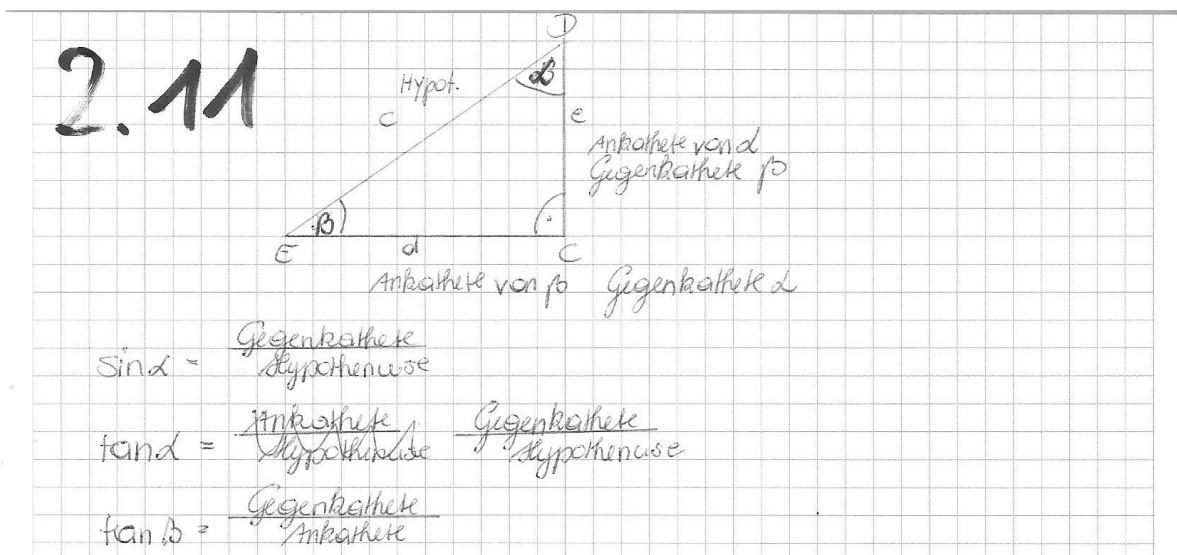 2.11
D
α
Hypot.
c
e
Ankathete von α
Gegenkathete β
β
E
d
C
Ankathete von β Gegenkathete α
sin α = Gegenkathete
Hypothenuse
tan α = Ankathete Gegenkathete
Hypothenuse Hypothenuse
tan β = Gegenkathete
Ankathete